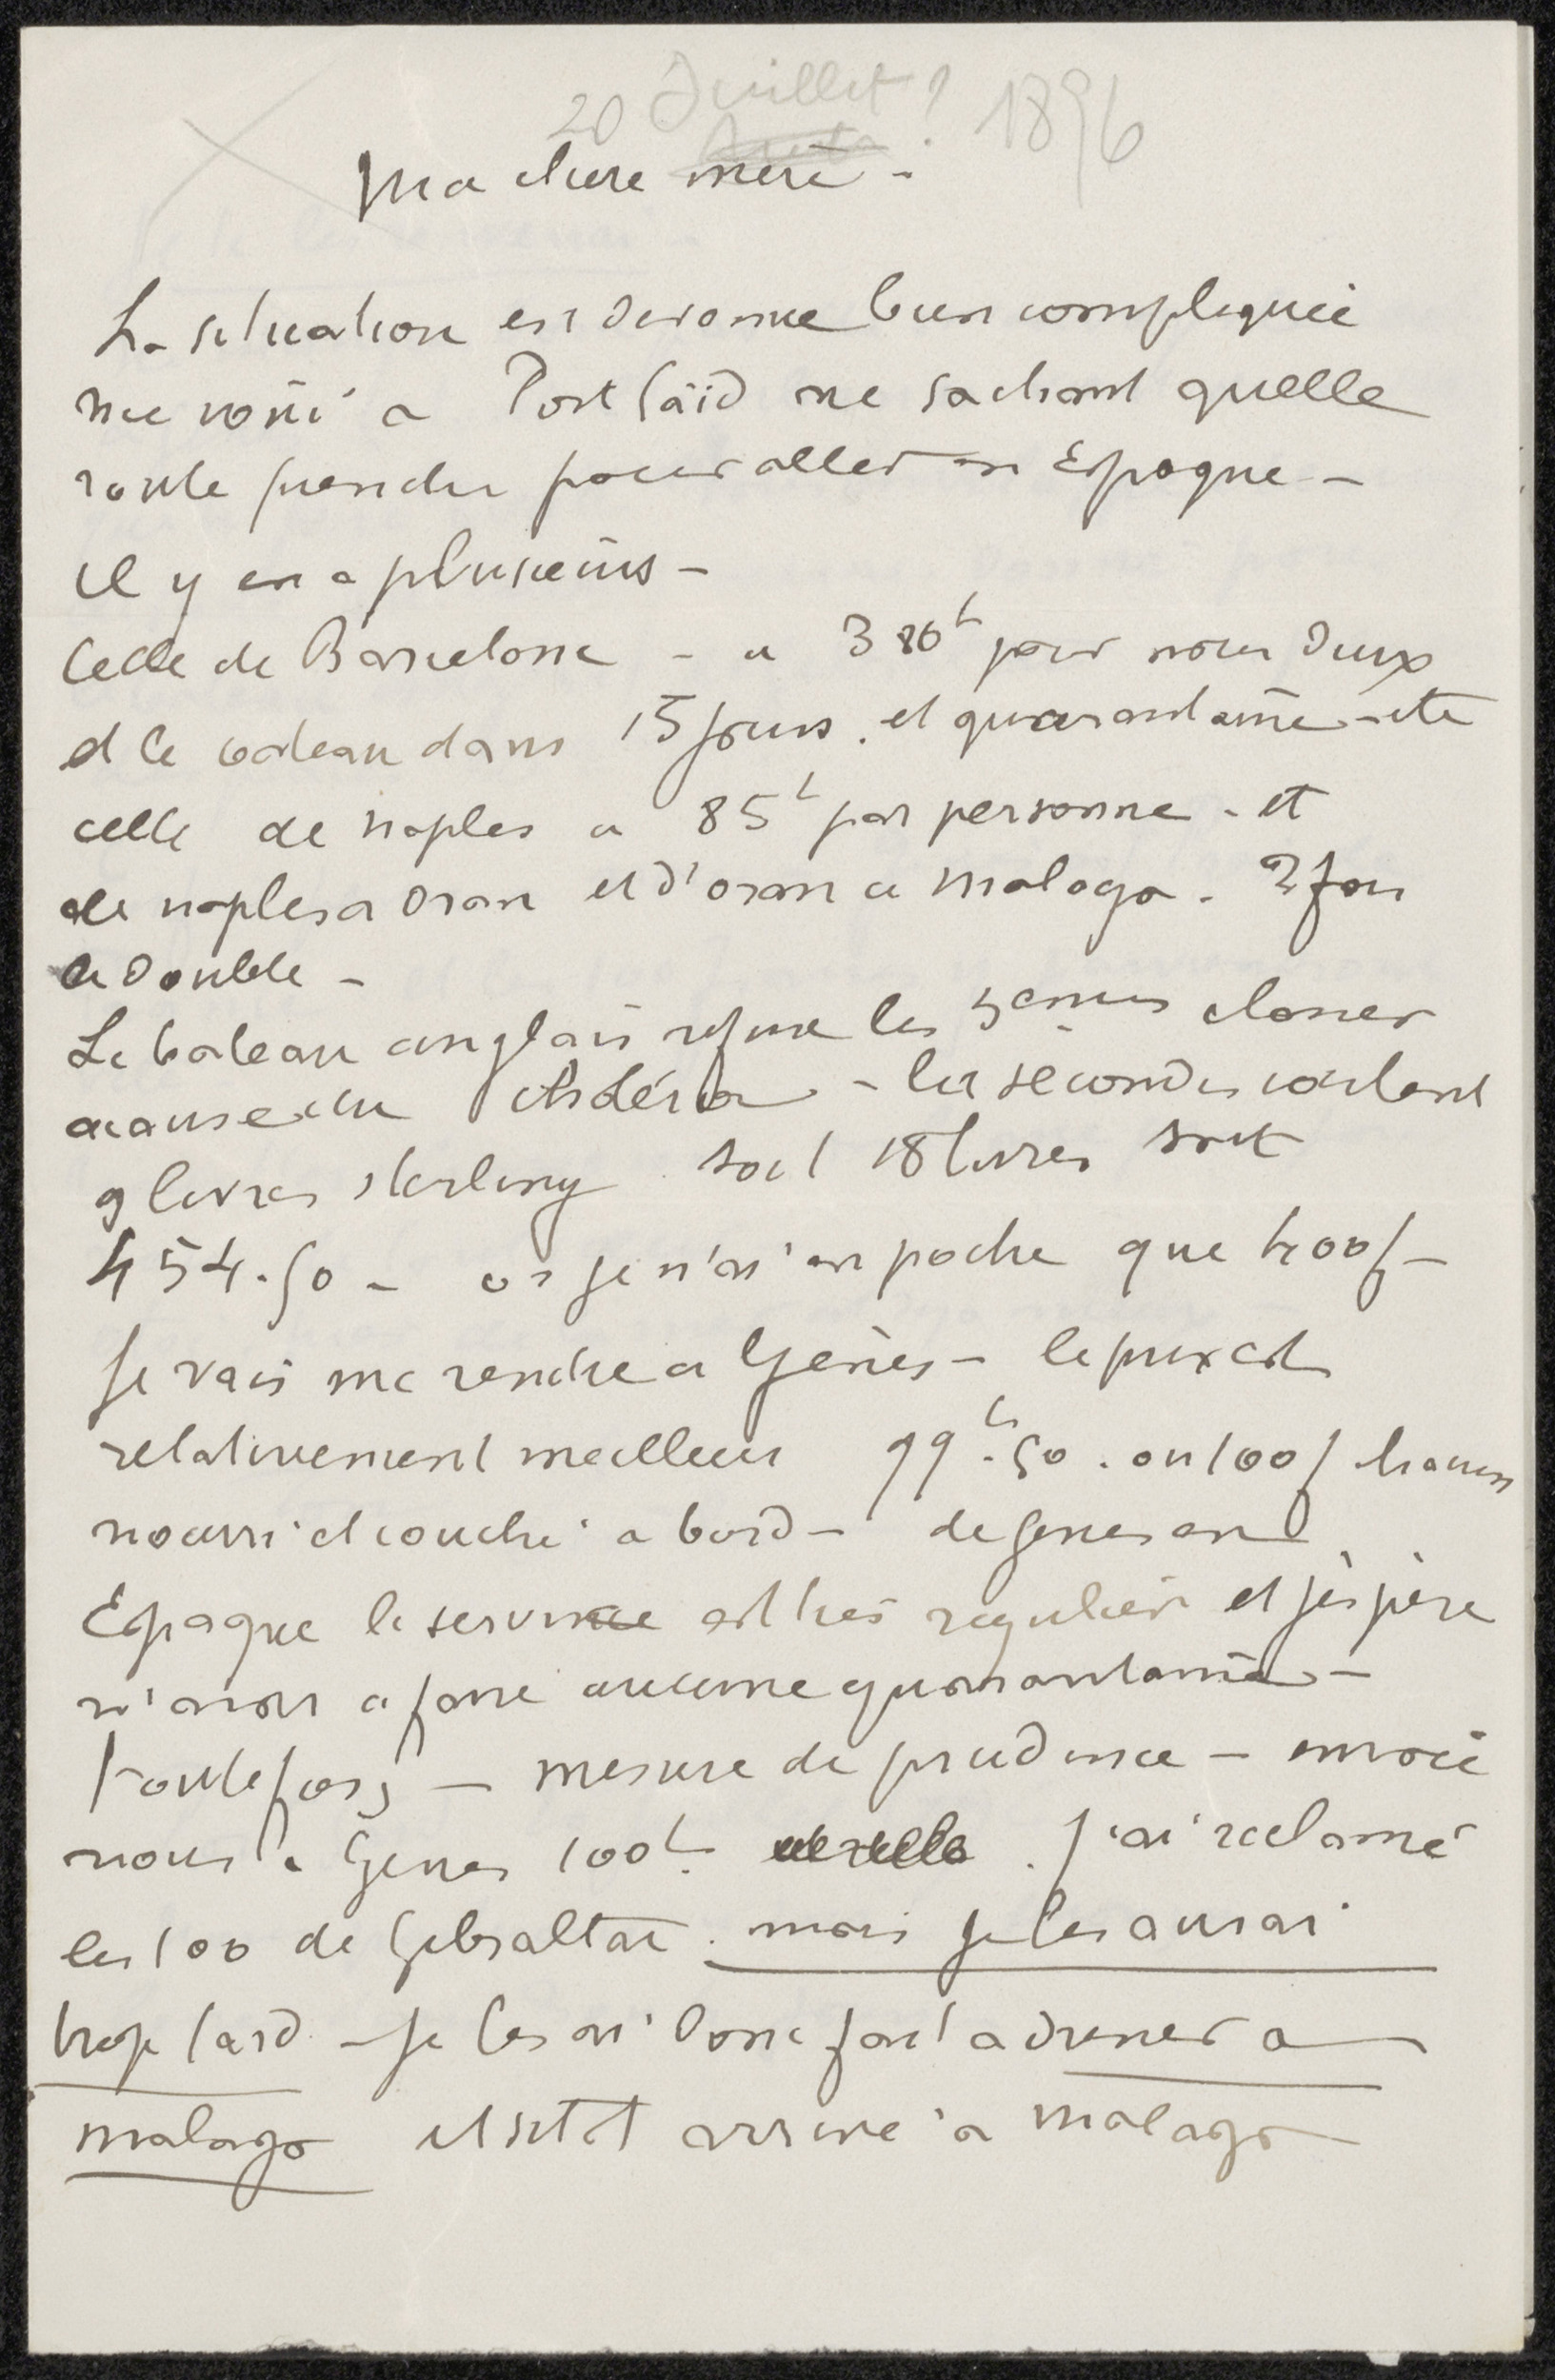 20 Juillet ? 1896
Ma chere mere -
La situation est devenue bien compliquée
me voici a Port Saïd ne sachant quelle
route prendre pour aller en Espagne -
il y en a plusieurs -
Celle de Barcelone - a 380 pour nous deux
et le bateau dans 15 jours . et quarantaine - etc
celle de Naples a 85 par personne . et
de naples a Oran et d'oran a malaga . 2 fois
le double -
Le bateau anglais refuse les 3emes classes
a cause du choléra - les secondes coutant
9 livres sterling soit 18 livres soit
454.50 - or je n'ai en poche que 400f -
Je vais me rendre a Gènes - le prix est
relativement meilleur 99.50 . ou 100f
nourri et couché a bord - de genes en
Espagne le service est tres regulier et j'espère
n'avoir a faire aucune quarantaine -
Toutefois - mesure de prudence - envoie
nous a Genes 100 . j'ai reclamé
les 100 de Gibraltar . mais je les aurai
trop tard - je les ai donc fait adresser a
malaga et sitot arrivé a malaga